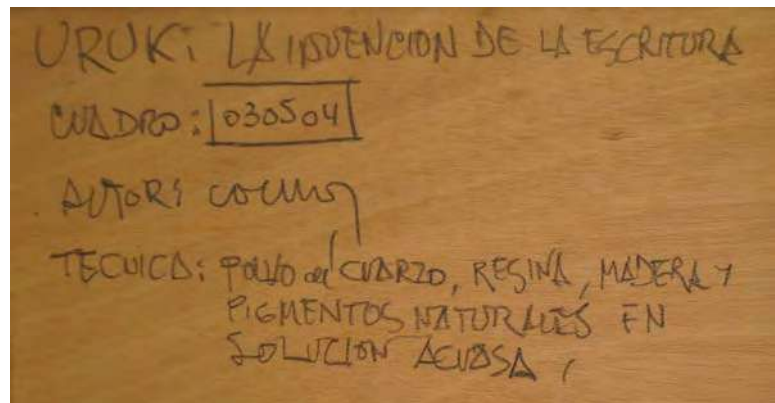 URUK: LA INVENCION DE LA ESCRITURA
CUADRO: 030504
AUTOR:
TECNICA: POLVO de CUARZO, RESINA, MADERA Y
PIGMENTOS NATURALES EN
SOLUCION ACUOSA,